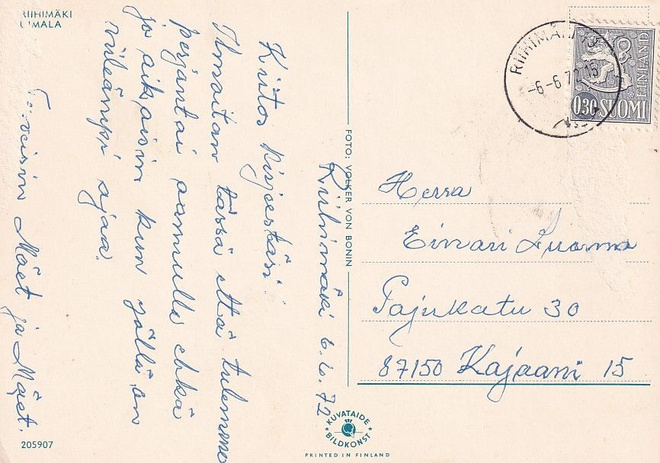 RIIHIMÄKI
Riihimäki 6.6.72
Kiitos kirjeestäsi!
Ilmoitan tässä että tulemme
perjantai aamulla ehkä
jo aikaisin kun yöllä on
viileämpi ajaa.
Terveisin Mäet ja Mäet.
205907
FOTO: VOLKER VON BONIN
KUVATAIDE
BILDKONST
PRINTED IN FINLAND
RIIHIMÄKI
-6-6.72-15
FINLAND
0,30 SUOMI
Herra
Einari Luoma
Pajukatu 30
87150 Kajaani 15